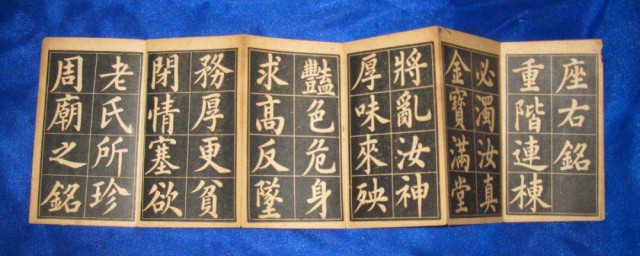 座右銘
重階連棟
必濁汝真
金寶滿堂
將亂汝神
厚味來殃
豔色危身
求高反墜
務厚更貧
閉情塞欲
老氏所珍
周廟之銘